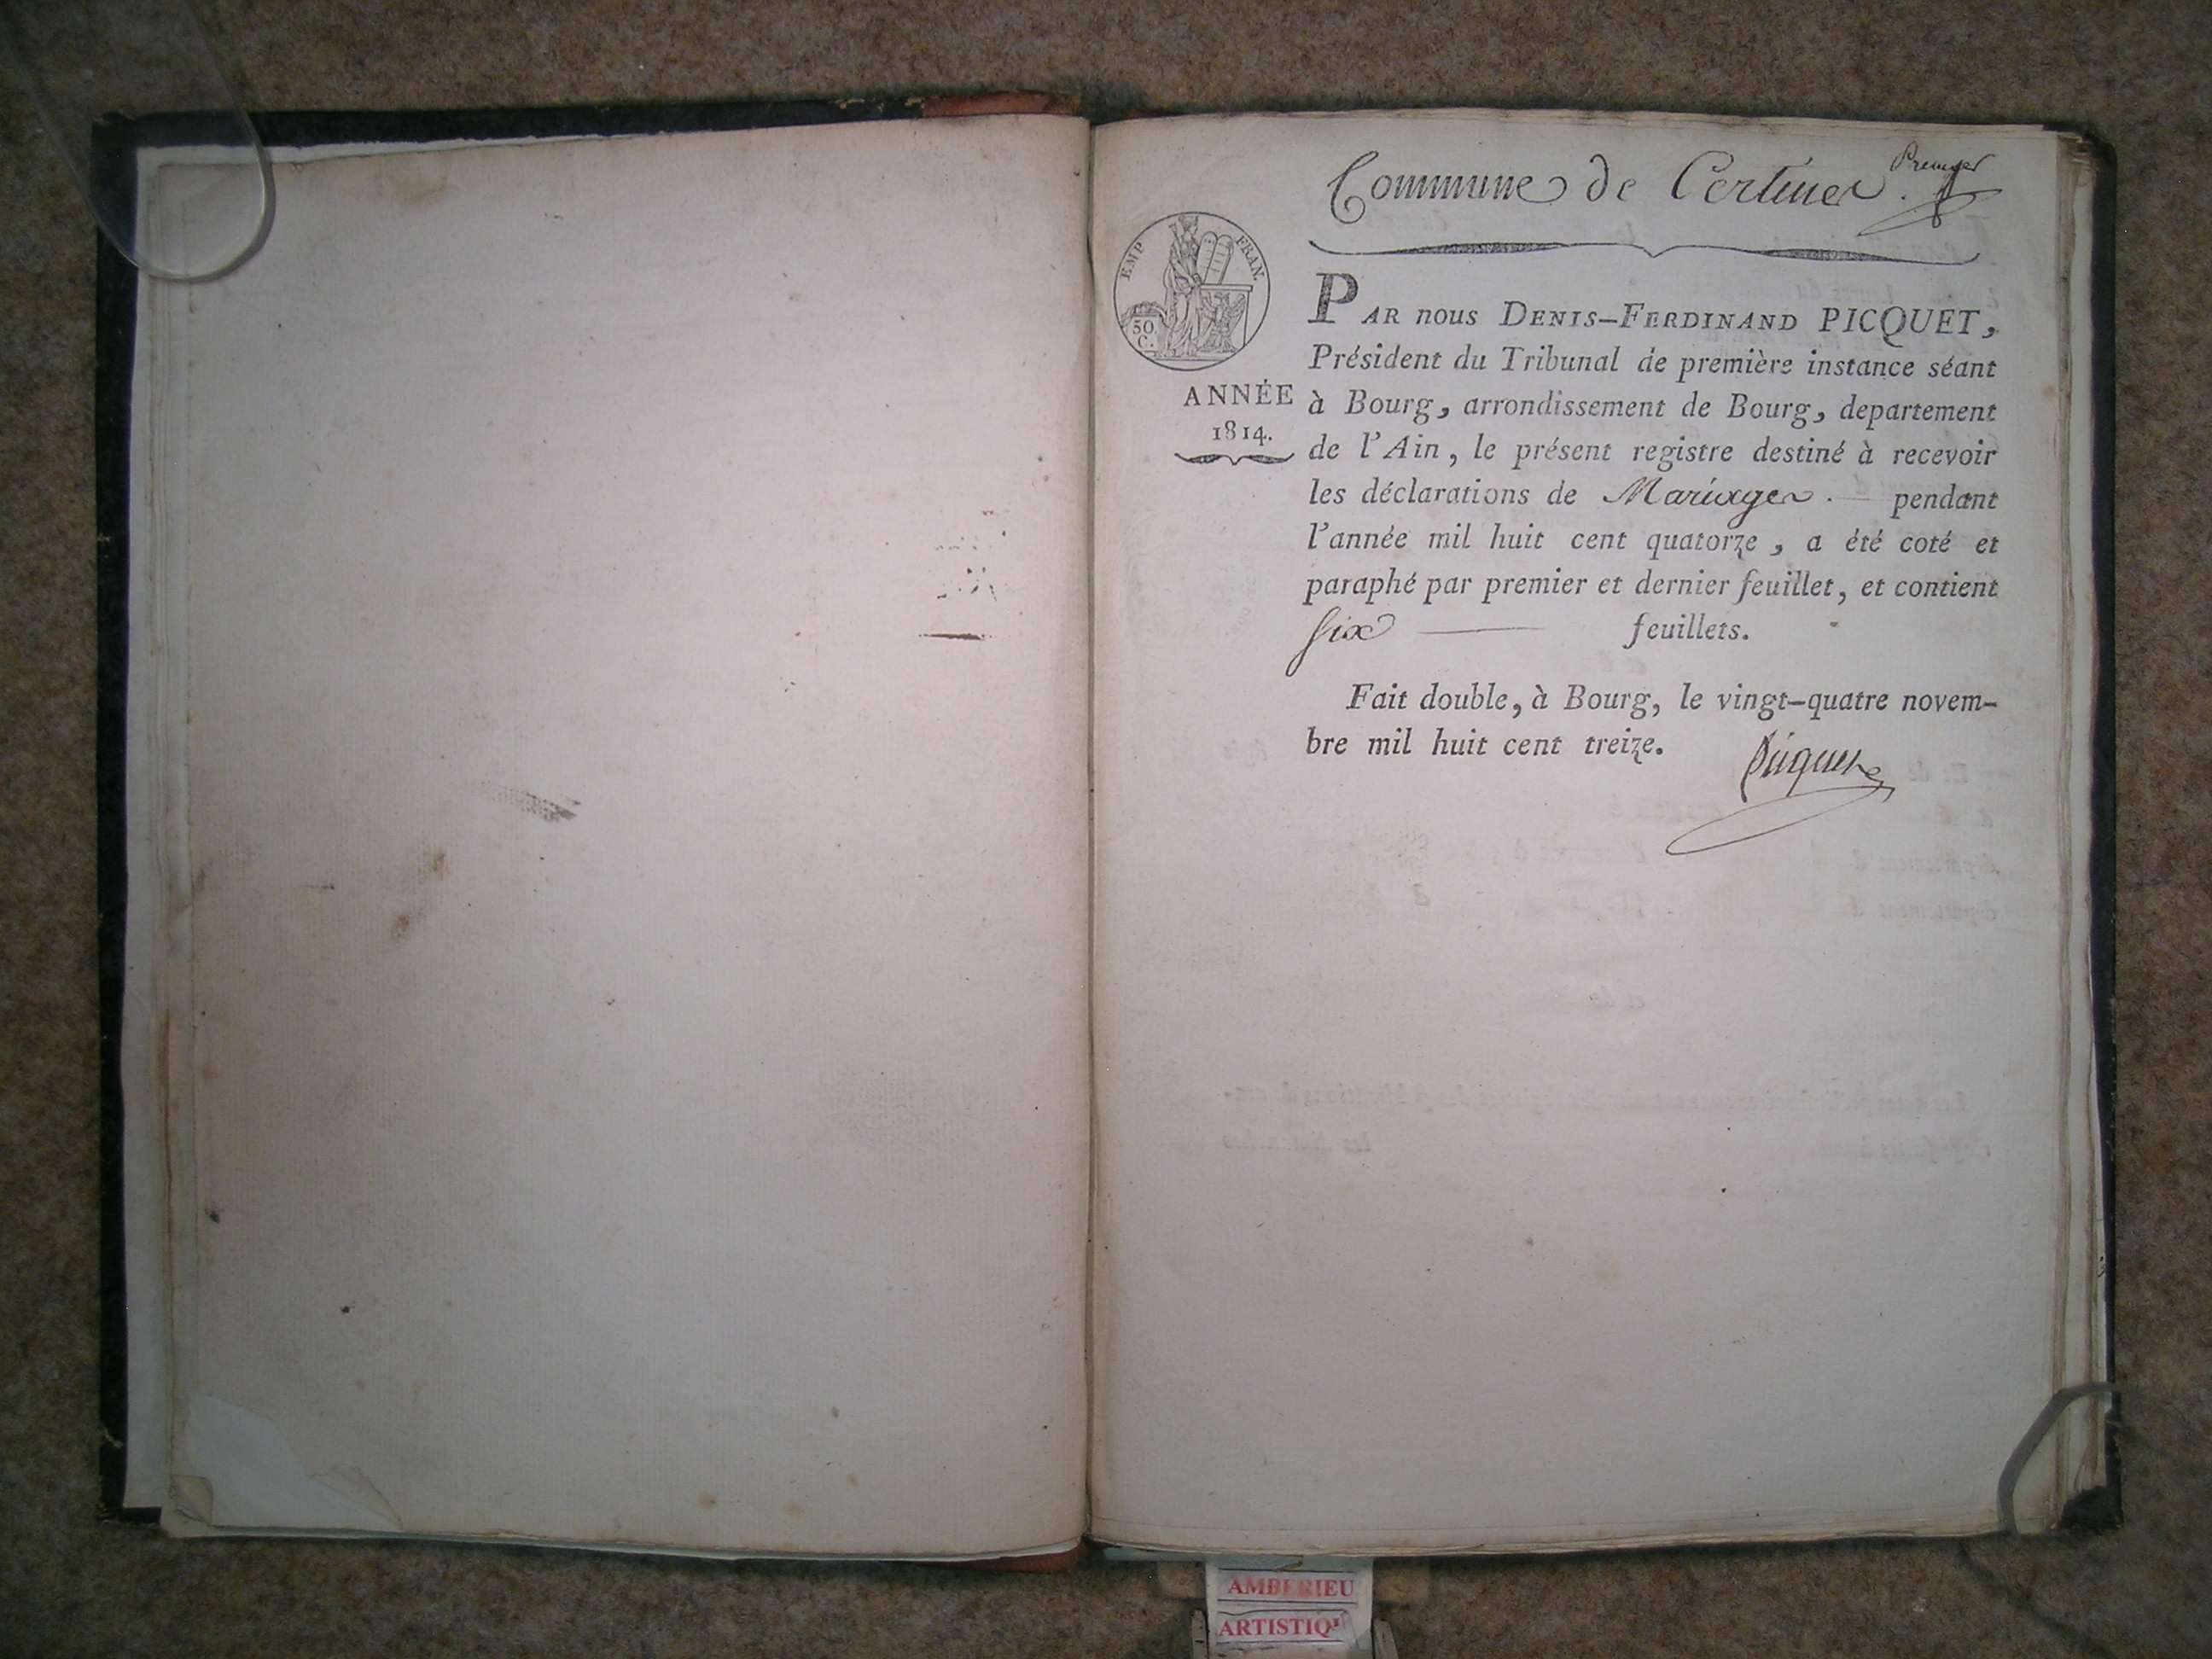 Premier
Commune de Certines.
EMP FRAN.
50
C.
ANNÉE
1814.
PAR nous DENIS-FERDINAND PICQUET,
Président du Tribunal de première instance séant
à Bourg, arrondissement de Bourg, departement
de l'Ain, le présent registre destiné à recevoir
les déclarations de Mariages. — pendant
l'année mil huit cent quatorze, a été coté et
paraphé par premier et dernier feuillet, et contient
six — feuillets.
Fait double, à Bourg, le vingt-quatre novem-
bre mil huit cent treize.
Picquet
AMBERIEU
ARTISTIQ